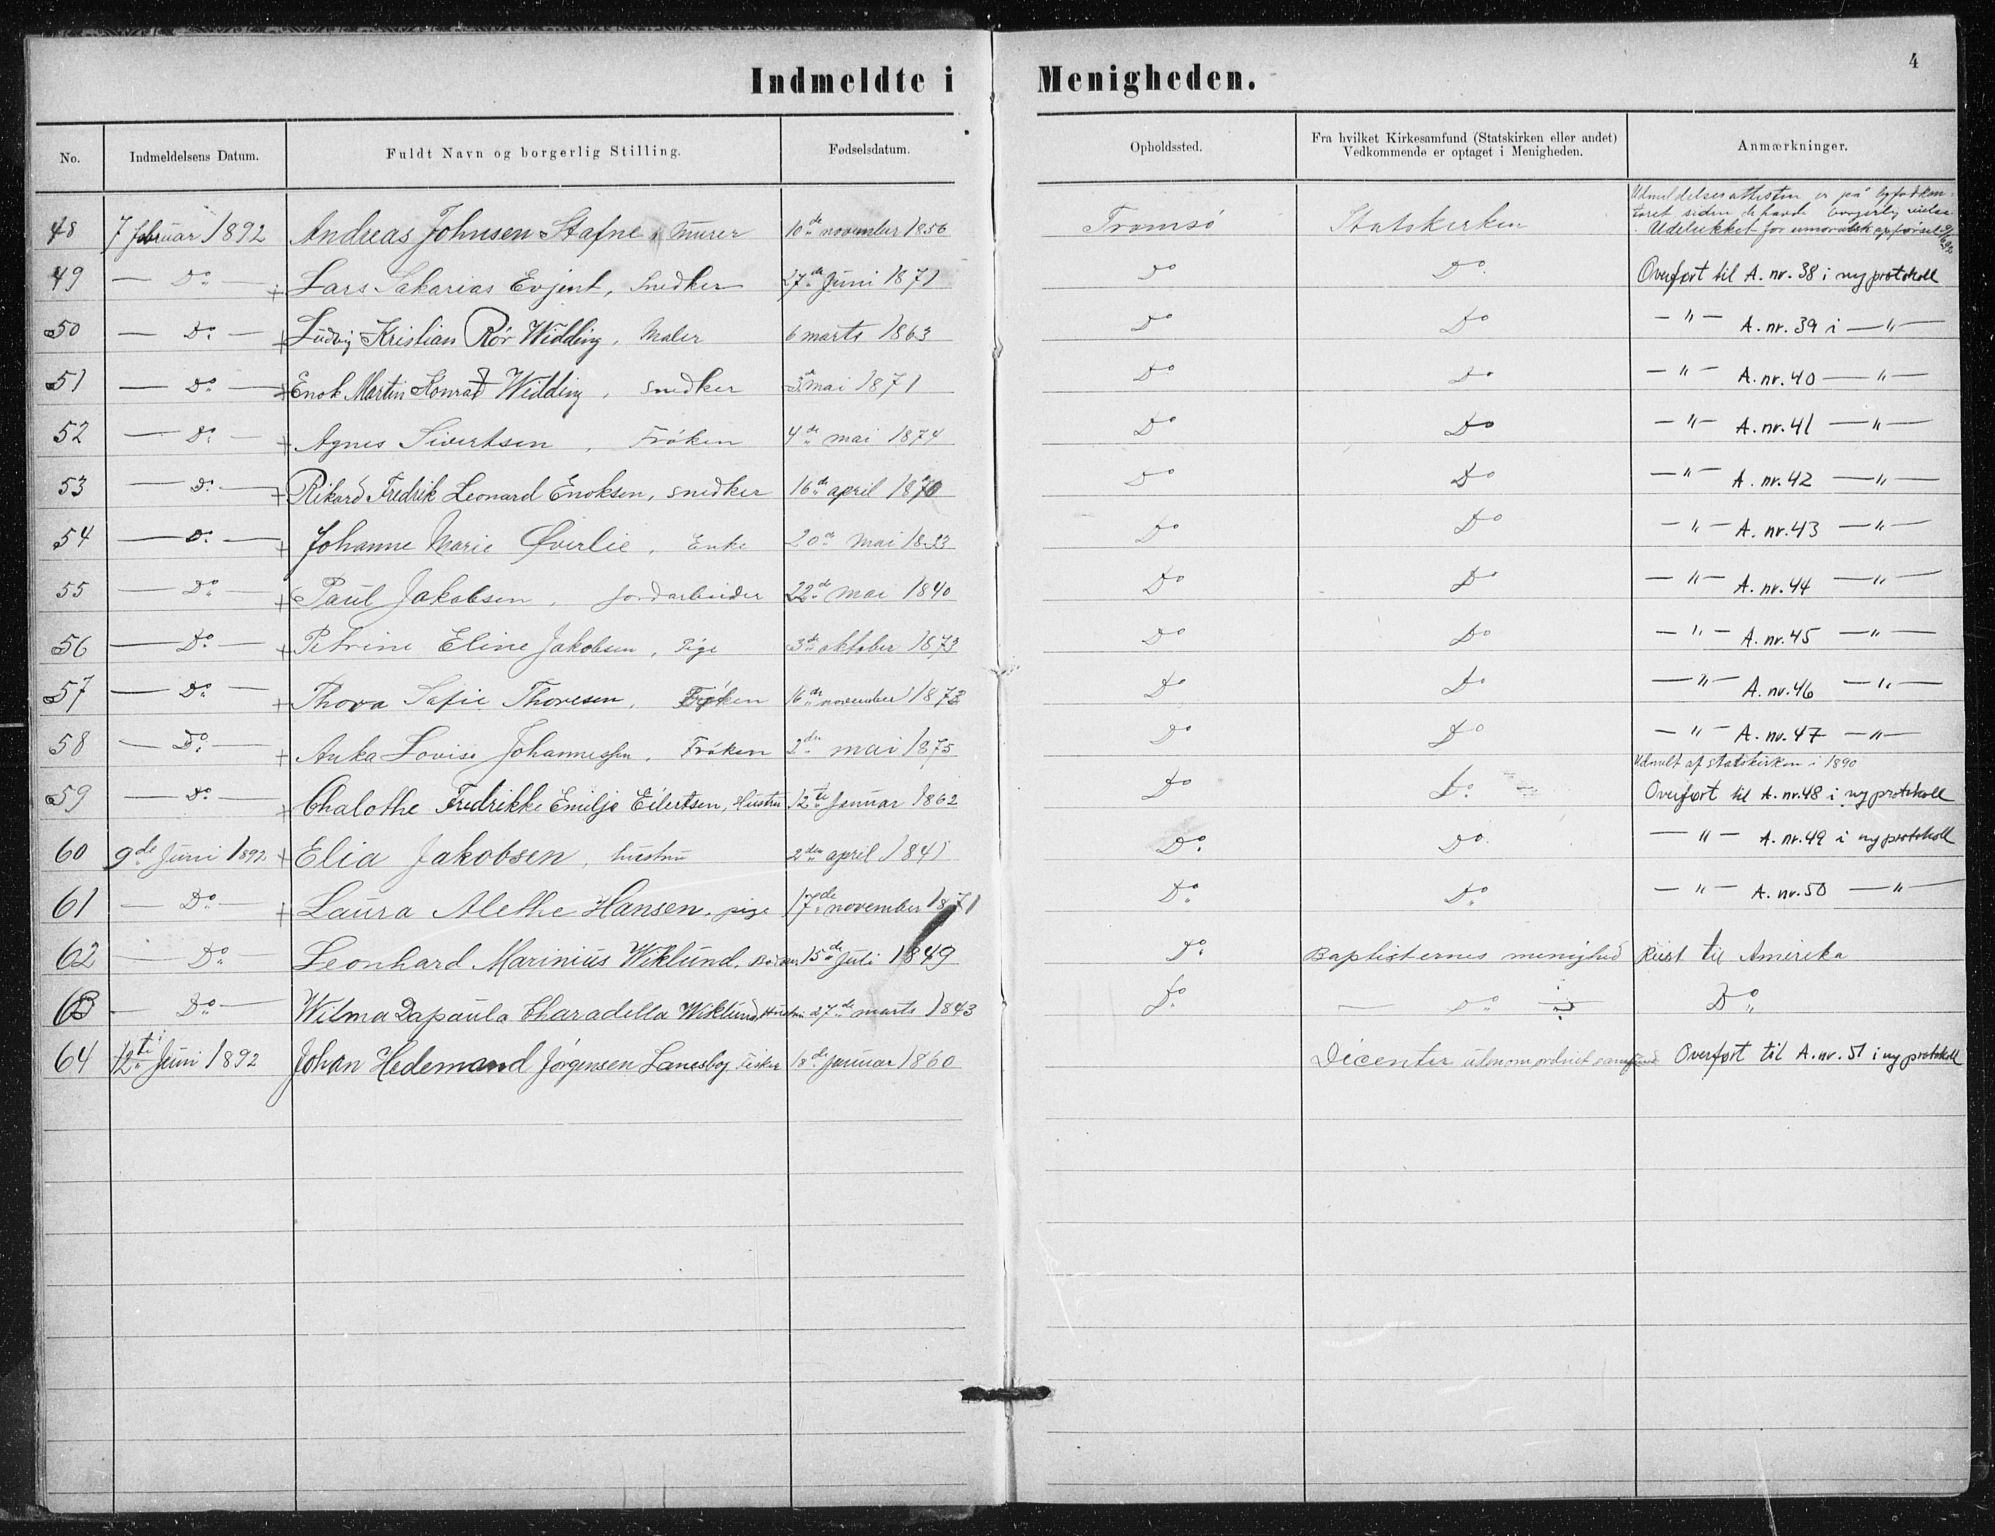 4
Indmeldte i Menigheden.
No. Indmeldelsens Datum. Fuldt Navn og borgerlig Stilling. Fødselsdatum. Opholdssted. Fra hvilket Kirkesamfund (Statskirken eller andet) Vedkommende er optaget i Menigheden. Anmærkninger.
Udmeldelsesattesten er på byfodkon-
toret siden de havde borgerlig vielse
48 7 februar 1892 Andreas Johnsen Stafne, Murer 10de november 1856 Tromsø Statskirken Udelukket for umoralsk
49 — Do — + Lars Sakarias Evjent, Snedker 27de Juni 1871 Do Do Overført til A. nr. 38 i ny protokoll
50 — Do — + Ludvig Kristian Rör Widding, Maler 6 marts 1863 Do Do — " — A. nr. 39 i — " —
51 — Do — + Enok Martin Konrad Widding, snedker 5 mai 1871 Do Do — " — A. nr. 40 — " —
52 — Do — + Agnes Sivertsen, Frøken 4de mai 1874 Do Do — " — A. nr. 41 — " —
53 — Do — + Rikard Fredrik Leonard Enoksen, snedker 16de april 1870 Do Do — " — A. nr. 42 — " —
54 — Do — + Johanne Marie Øverlie, Enke 20de mai 1823 Do Do — " — A. nr. 43 — " —
55 — Do — + Paul Jakobsen, jordarbeider 22de mai 1840 Do Do — " — A. nr. 44 — " —
56 — Do — + Petrine Eline Jakobsen, Pige 3de oktober 1873 Do Do — " — A. nr. 45 — " —
57 — Do — + Thora Sofie Thoresen, Frøken 16de november 1873 Do Do — " — A. nr. 46 — " —
58 — Do — + Anka Lovise Johannessen, Frøken 2den mai 1875 Do Do — " — A. nr. 47 — " —
Udmelt af statskirken i 1890
59 — Do — + Chalothe Fredrikke Emilje Eilertsen, Hustru 12te Januar 1862 Do Do Overført til A. nr. 48 i ny protokoll
60 9de Juni 1892 + Elia Jakobsen, hustru 2den april 1841 Do Do — " — A. nr. 49 i ny protokoll
61 — Do — + Laura Alethe Hansen, pige 17de november 1871 Do Do — " — A. nr. 50 — " —
62 — Do — Leonhard Marinius Wiklund, 15de Juli 1849 Do Baptisternes menighed Reist til Amerika
63 — Do — Wilma Dapaula Charadella Wiklund, Hustru 27de marts 1843 Do — Do — Do
64 12te Juni 1892 Johan Hedemand Jørgensen Lanesbog Fisker 18de Januar 1860 Dicenter Overført til A. nr. 51 i ny protokoll